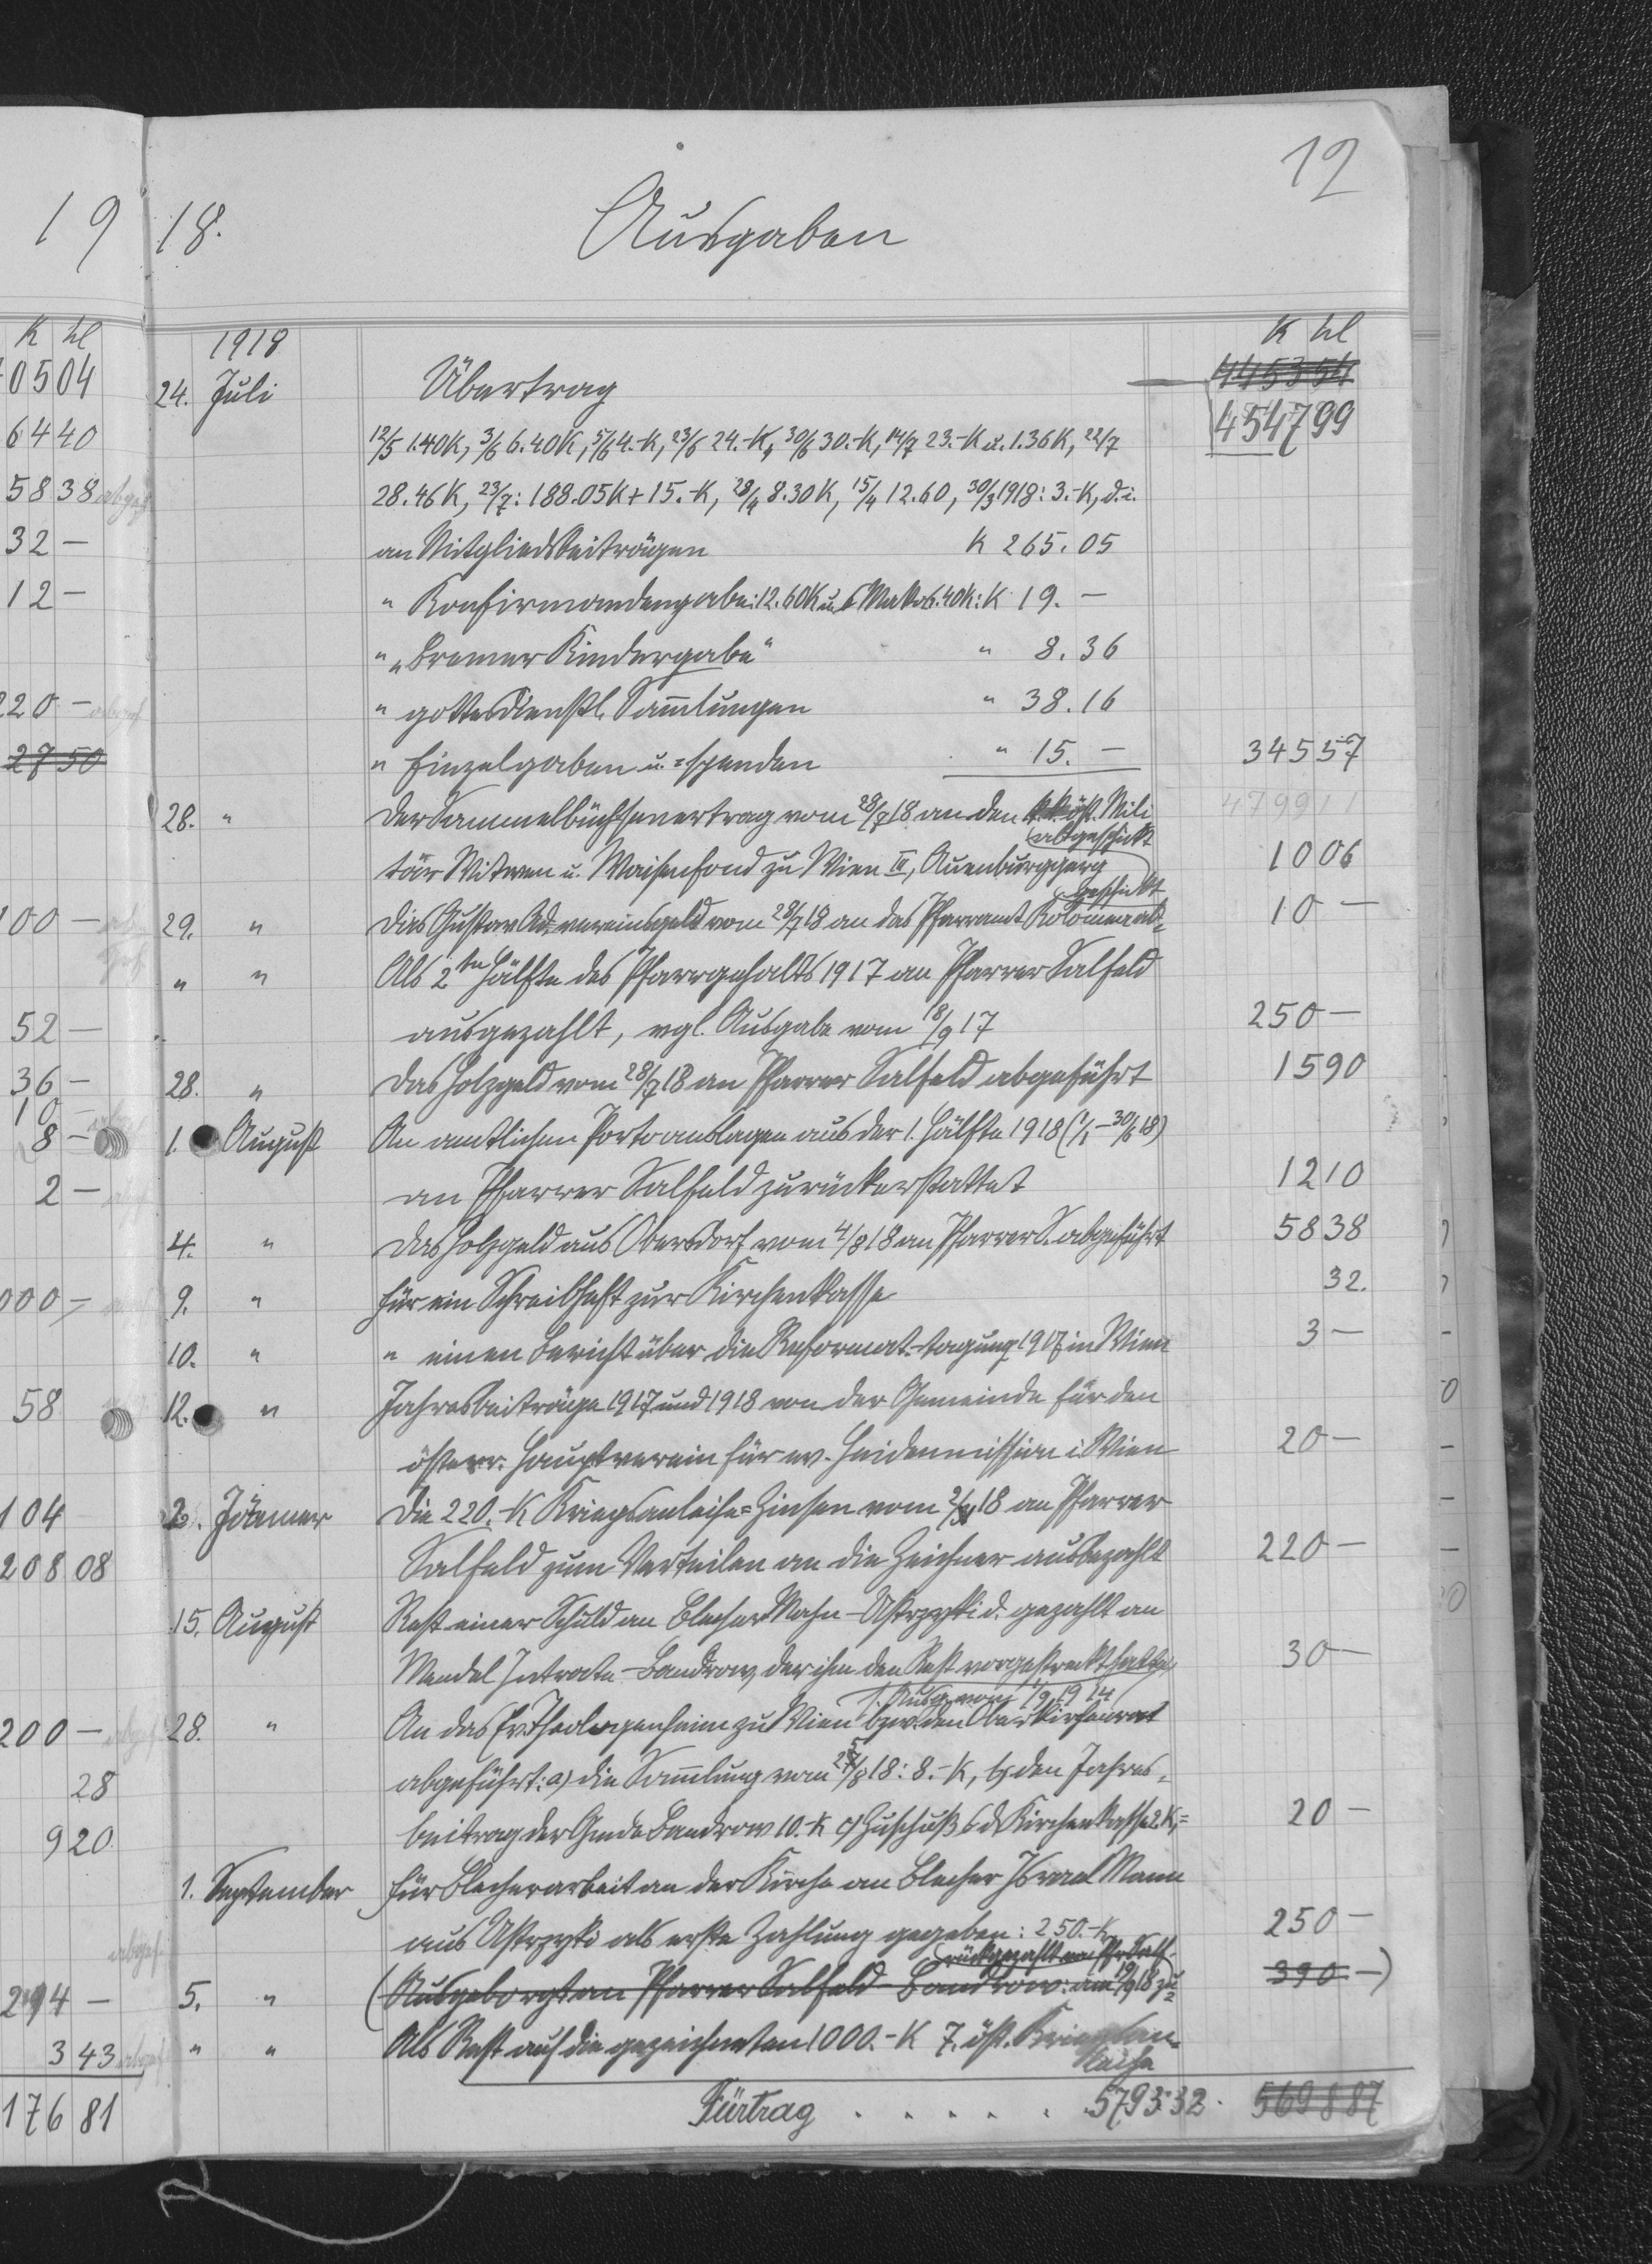 12
19 18.
Ausgaben
K hl
0504
6440
5838 abgef
32 —
12 —
220 —
2750
100 —
52 —
36 —
10 —
8 —
2 —
000 —
58
104
20808
200 —
28
920
294 —
343
17681
1918
K hl
24. Juli Übertrag 445354
454799
12/5 1.40K, 3/6 6.40K, 5/6 4.-K, 23/6 24.-K, 30/6 30.-K, 14/7 23.-K u. 1.36K, 22/7
28.46K, 23/7: 188.05K + 15.-K, 28/4 8.30K, 15/4 12.60, 30/3 1918: 3.-K, d.i.
an Mitgliedsbeiträgen K 265.05
" Konfirmandengabe: 12.60K u. 6.40K: K 19.—
" "Bremer Kindergabe" " 8.36
" gottesdienstl. Samlungen " 38.16
" Einzelgaben u. =spenden " 15.— 34557
28. " Der Sammelbüchsenertrag vom 28/7 18 an den k.k. öst. Mili 479911
abgeschickt
tär Witwen u. Waisenfond zu Wien IX, 1006
geschickt
29. " Das Gustav Ad.-vereinsgeld vom 28/7 18 an das Pfarramt Kolomea ab= 10 —
" " Als 2te Hälfte des Pfarrgehalts 1917 an Pfarrer Salfeld
ausgezahlt, vgl. Ausgabe vom 18/9 17 250 —
28. " Das Holzgeld vom 28/7 18 an Pfarrer Salfeld abgeführt 1590
1. August An amtlichen Portoauslagen aus der 1. Hälfte 1918 (1/1 – 30/6 18)
an Pfarrer Salfeld zurückerstattet 1210
4. " Das Holzgeld aus Obersdorf vom 4/8 18 an Pfarrer S. abgeführt 5838
9. " Für ein Schreibheft zur Kirchenkasse 32.
10. " " einen Bericht über die Reformat.-tagung 1917 in Wien 3 —
12. " Jahresbeiträge 1917 und 1918 von der Gemeinde für den
österr. Hauptverein für ev. Heidenmission i. Wien 20 —
2. Jänner Die 220.-K Kriegsanleihe=Zinsen vom 18 an Pfarrer
Salfeld zum Verteilen an die Zeichner ausbezahlt 220 —
15. August Rest einer Schuld an Blecher Mahn-Ustrzyki d. gezahlt an
Mendel Intrate-Bandrow, der ihm den Rest vorgestreckt hatte, 30 —
s. Ausg. vom 1/9 1914
28. " An das Ev. Theologenheim zu Wien bzw. den Oberkirchenrat
abgeführt: a) die Samlung vom 25/8 18: 8.-K, b) den Jahres=
beitrag der Gmde Bandrow 10.-K c) Zuschuß d. Kirchenkasse 2.K,= 20 —
1. September Für Blecherarbeit an der Kirche an Blecher Israel Mann
aus Ustrzyki als erste Zahlung gegeben: 250.-K 250 —
rückgezahlt von Pfr. Salf.
5. " (Ausgeborgt an Pfarrer Salfeld-Bandrow: am 19/9 18 zu= 390 —)
" " Als Rest auf die gezeichneten 1000.-K 7. öst. Kriegsan=
leihe
Fürtrag . . . . . . 5793.32. 569887